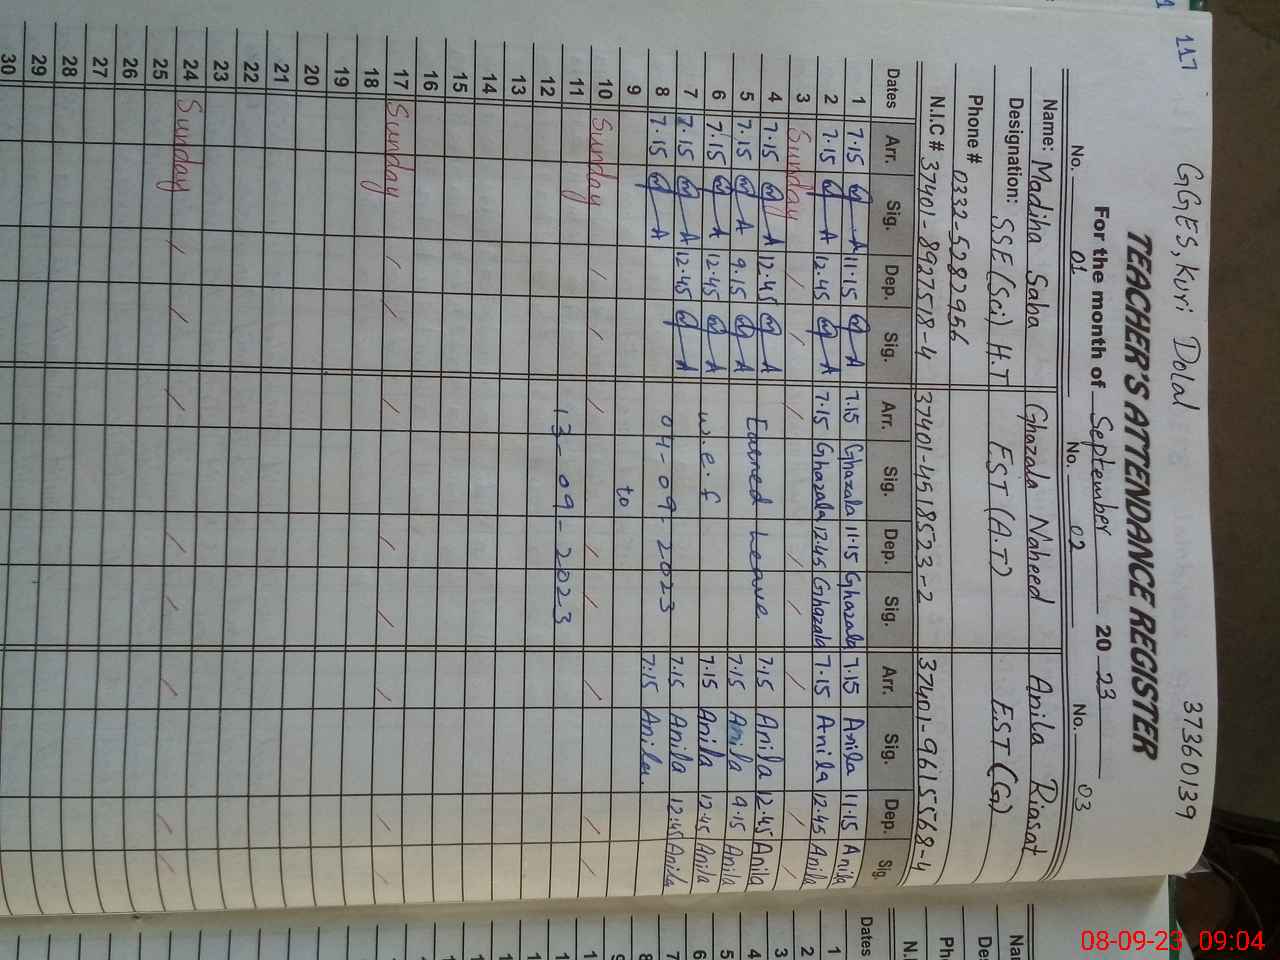 117 GGES, Kuri Dolal 37360139
TEACHER'S ATTENDANCE REGISTER
For the month of September 20 23
No. 01 No. 02 No. 03
Name: Madiha Saba Ghazala Naheed Anila Riasat
Designation: SSE (Sci) H.T EST (A.T) EST (G)
Phone # 0332-5282956
N.I.C # 37401-8927518-4 37401-4518523-2 37401-9615568-4
Dates Arr. Sig. Dep. Sig. Arr. Sig. Dep. Sig. Arr. Sig. Dep. Sig.
1 7.15 11.15 7.15 Ghazala 11.15 Ghazala 7.15 Anila 11.15 Anila
2 7.15 12.45 7.15 Ghazala 12.45 Ghazala 7.15 Anila 12.45 Anila
3 Sunday
4 7.15 12.45 Earned Leave 7.15 Anila 12.45 Anila
5 7.15 9.15 7.15 Anila 9.15 Anila
6 7.15 12.45 w.e.f 7.15 Anila 12.45 Anila
7 7.15 12.45 04-09-2023 7.15 Anila 12:45 Anila
8 7.15 7:15 Anila
9 to
10 Sunday
11 13-09-2023
12
13
14
15
16
17 Sunday
18
19
20
21
22
23
24 Sunday
25
26
27
28
29
30
Dates
1
2
3
4
5
6
7
8
08-09-23 09:04